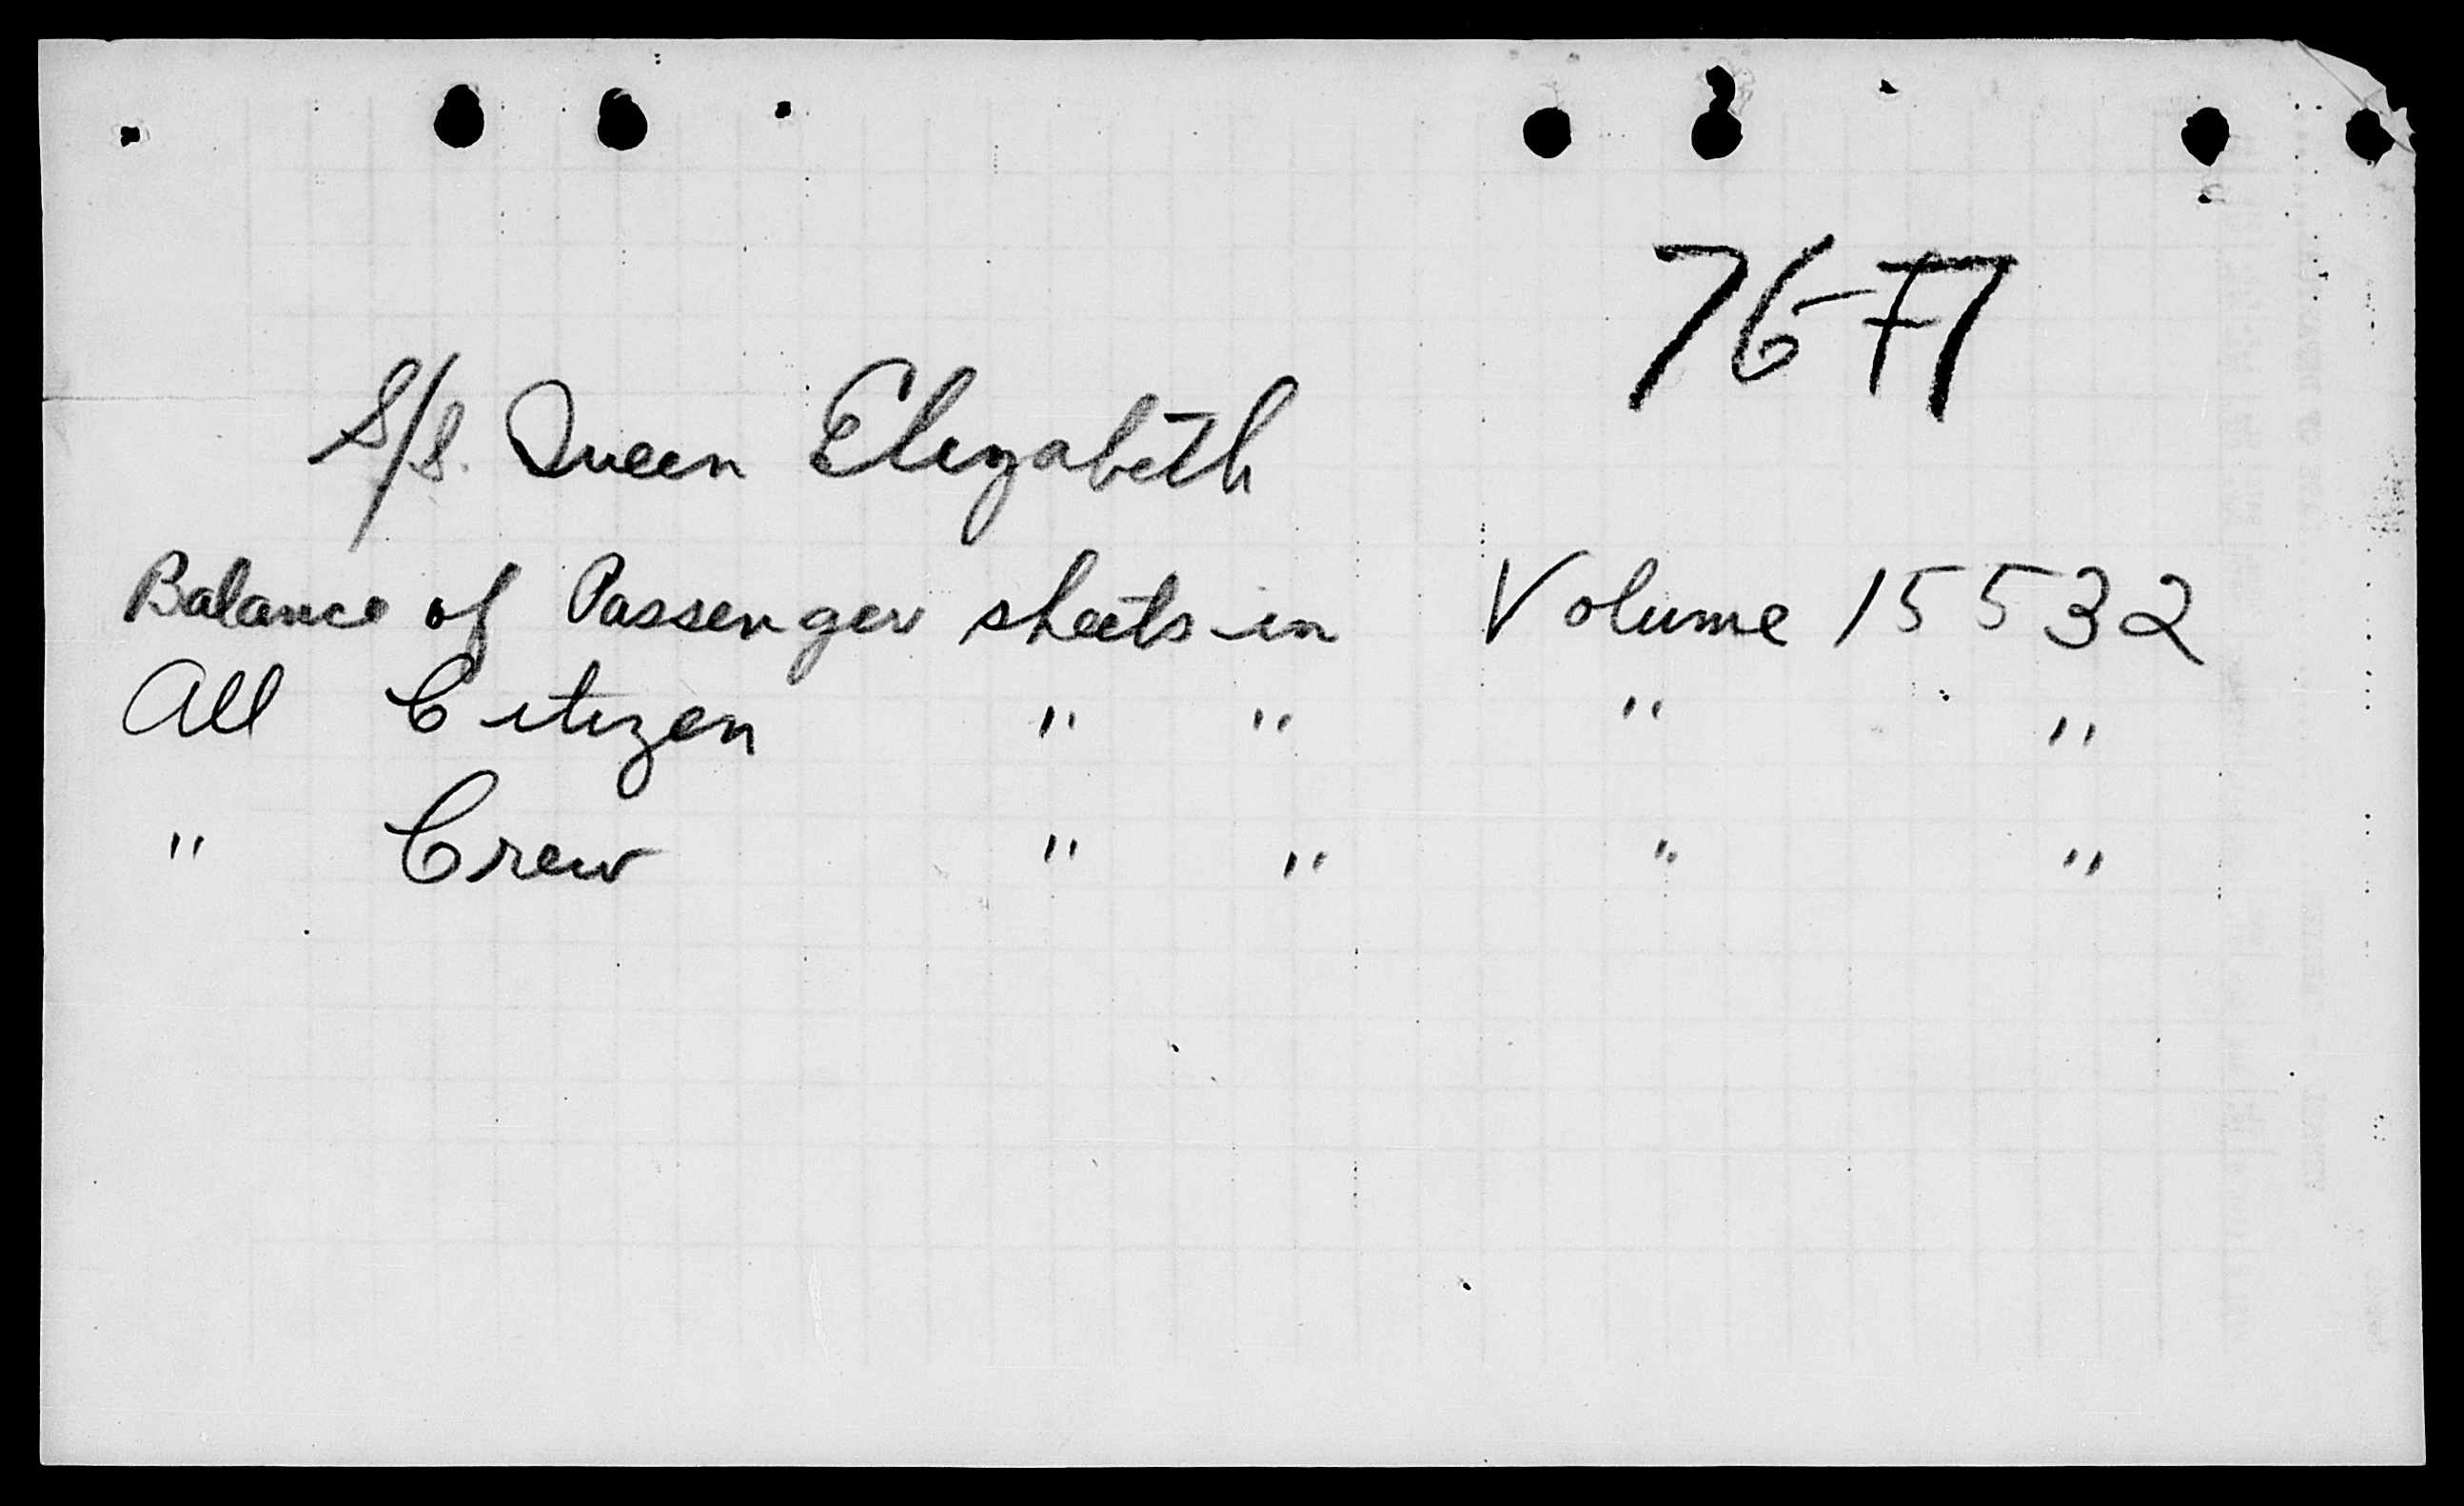 7677
S/S. Queen Elizabeth
Balance of Passenger sheets in Volume 15532
All Citizen " " " "
" Crew " " " "